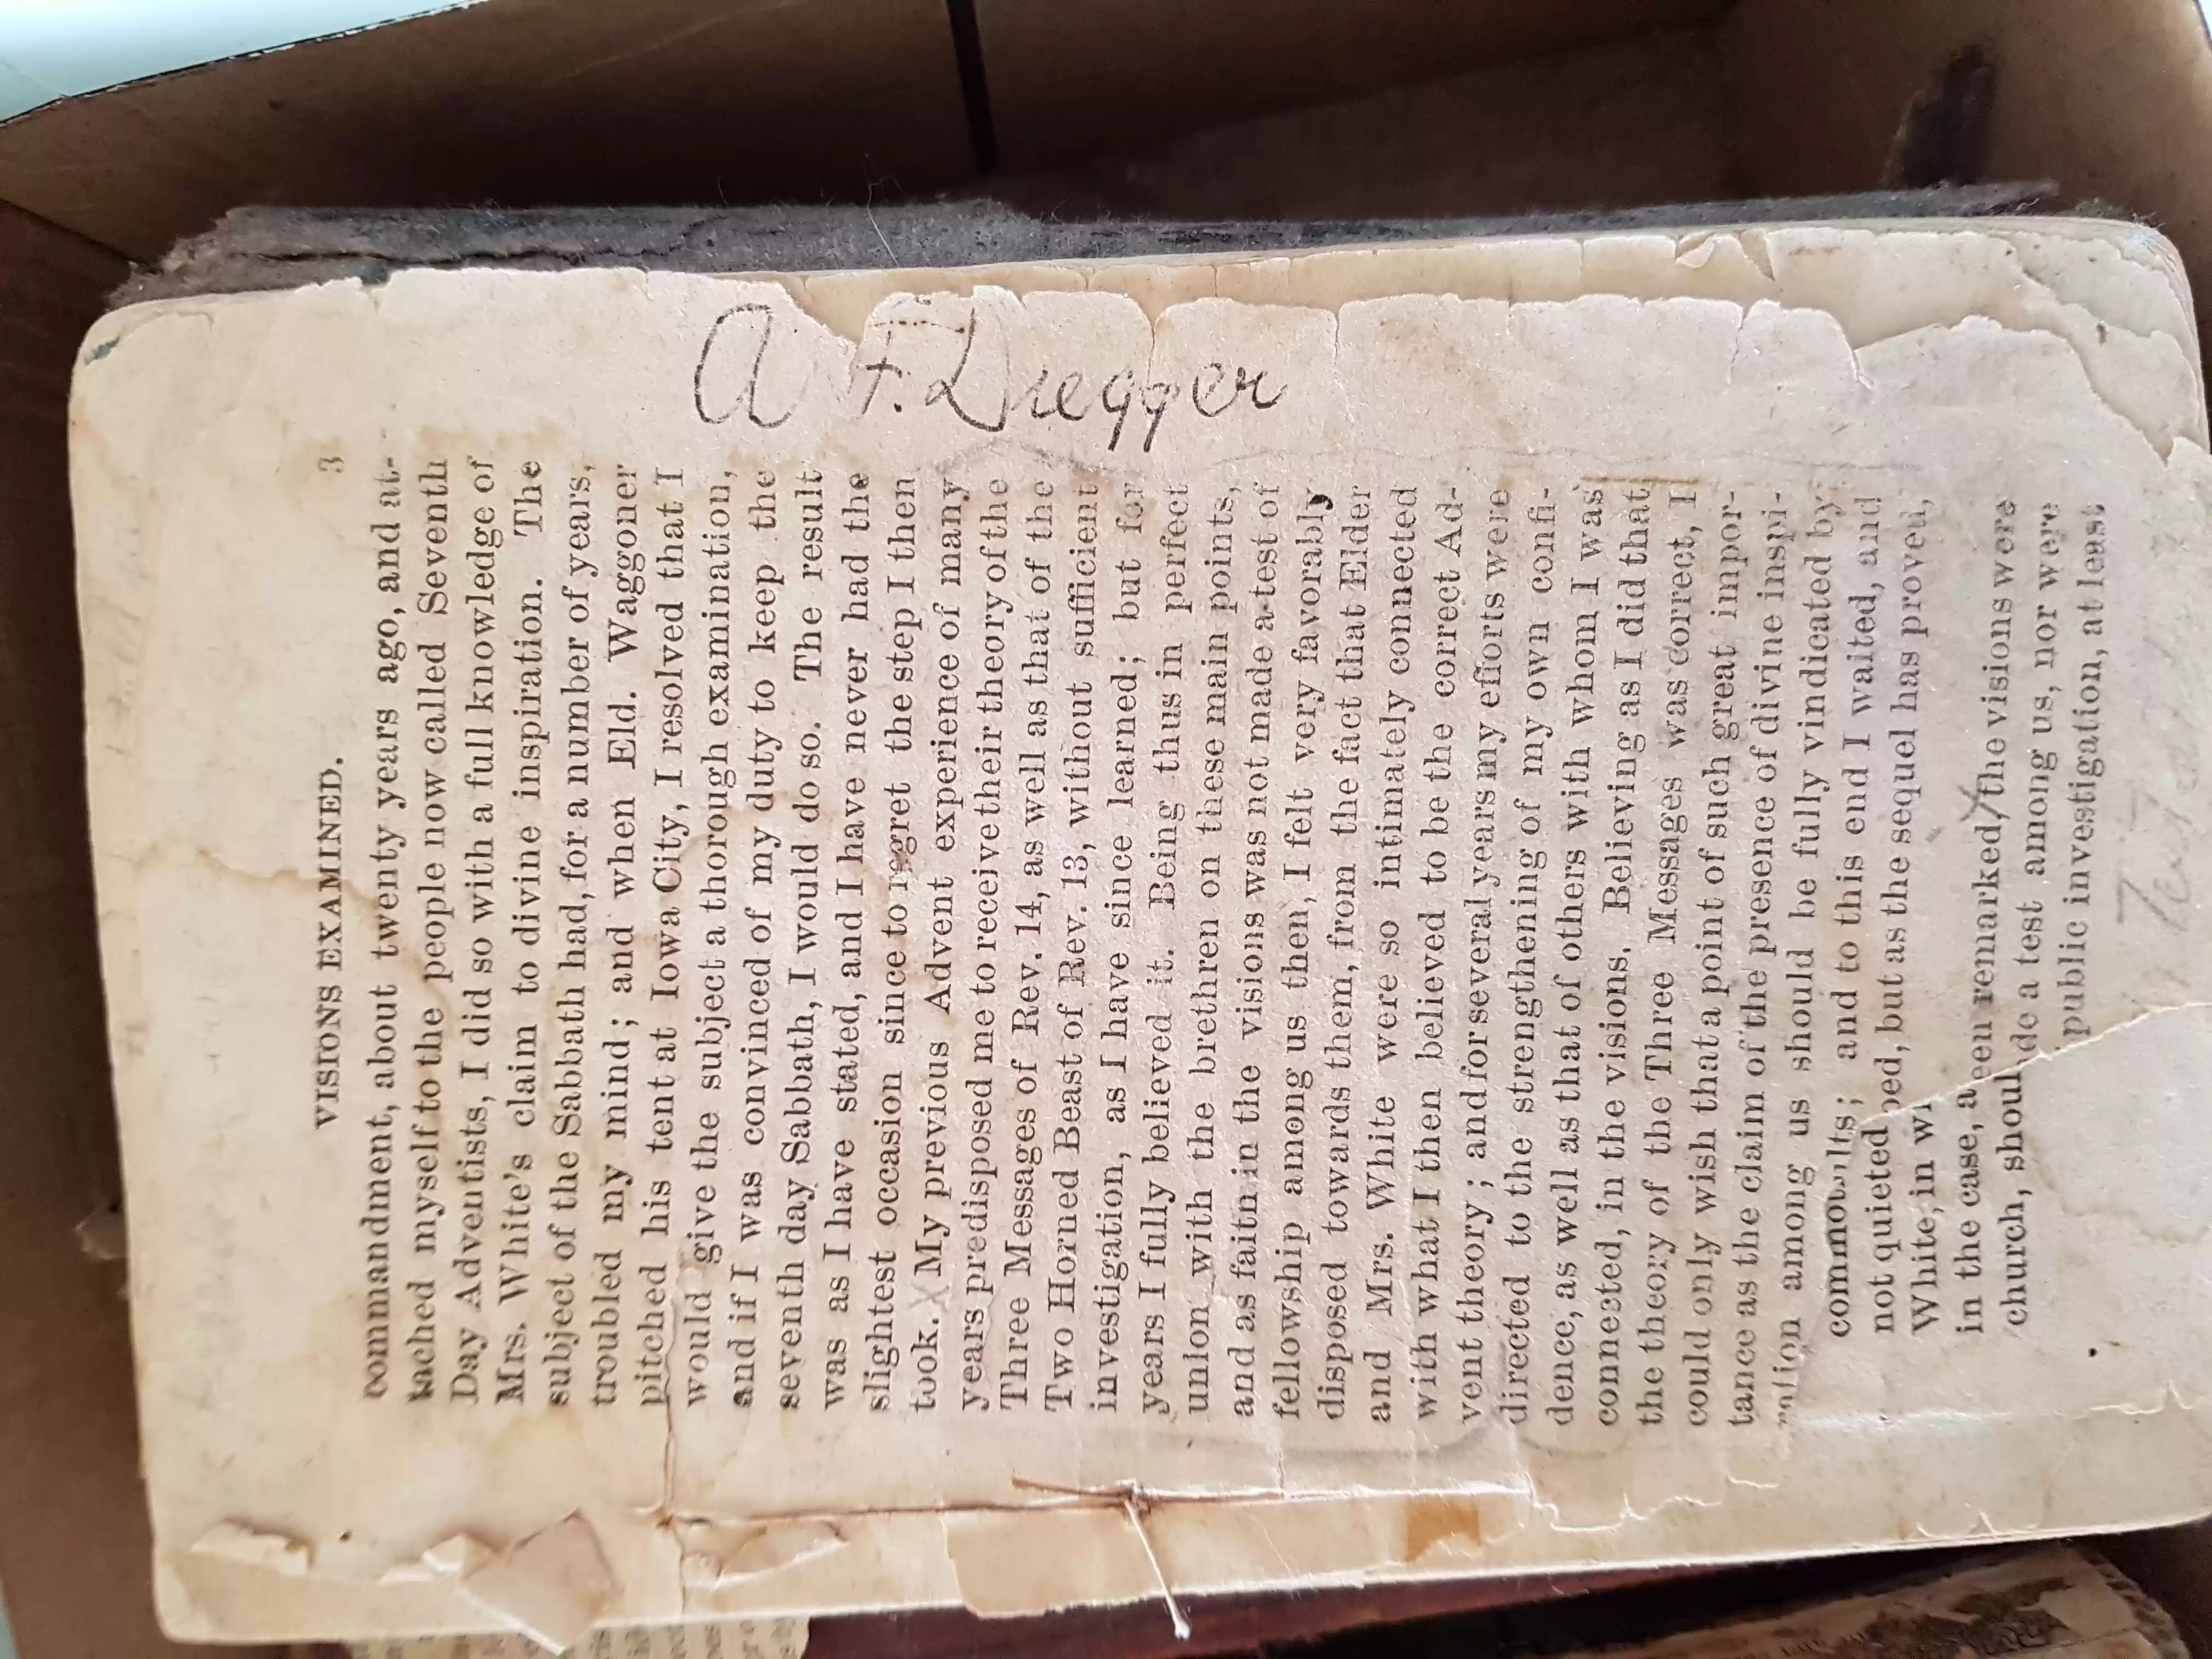 VISIONS EXAMINED. 3
commandment, about twenty years ago, and at-
tached myself to the people now called Seventh
Day Adventists, I did so with a full knowledge of
Mrs. White's claim to divine inspiration. The
subject of the Sabbath had, for a number of years,
troubled my mind; and when Eld. Waggoner
pitched his tent at Iowa City, I resolved that I
would give the subject a thorough examination,
and if I was convinced of my duty to keep the
seventh day Sabbath, I would do so. The result
was as I have stated, and I have never had the
slightest occasion since to regret the step I then
took. My previous Advent experience of many
years predisposed me to receive their theory of the
Three Messages of Rev. 14, as well as that of the
Two Horned Beast of Rev. 13, without sufficient
investigation, as I have since learned; but for
years I fully believed it. Being thus in perfect
union with the brethren on these main points,
and as faith in the visions was not made a test of
fellowship among us then, I felt very favorably
disposed towards them, from the fact that Elder
and Mrs. White were so intimately connected
with what I then believed to be the correct Ad-
vent theory; and for several years my efforts were
directed to the strengthening of my own confi-
dence, as well as that of others with whom I was
connected, in the visions. Believing as I did that
the theory of the Three Messages was correct, I
could only wish that a point of such great impor-
tance as the claim of the presence of divine inspi-
ration among us should be fully vindicated by
; and to this end I waited, and
not quieted, but as the sequel has proved,
White, in
in the case, a een remarked, the visions were
church, shoul de a test among us, nor were
public investigation, at least
A F. Dugger